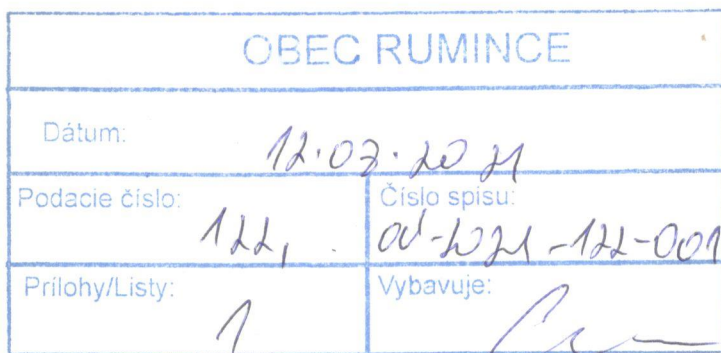 OBEC RUMINCE
Dátum: 12.07.2021
Podacie číslo: 122,
Číslo spisu: od-2021-122-001
Prílohy/Listy: 1
Vybavuje: